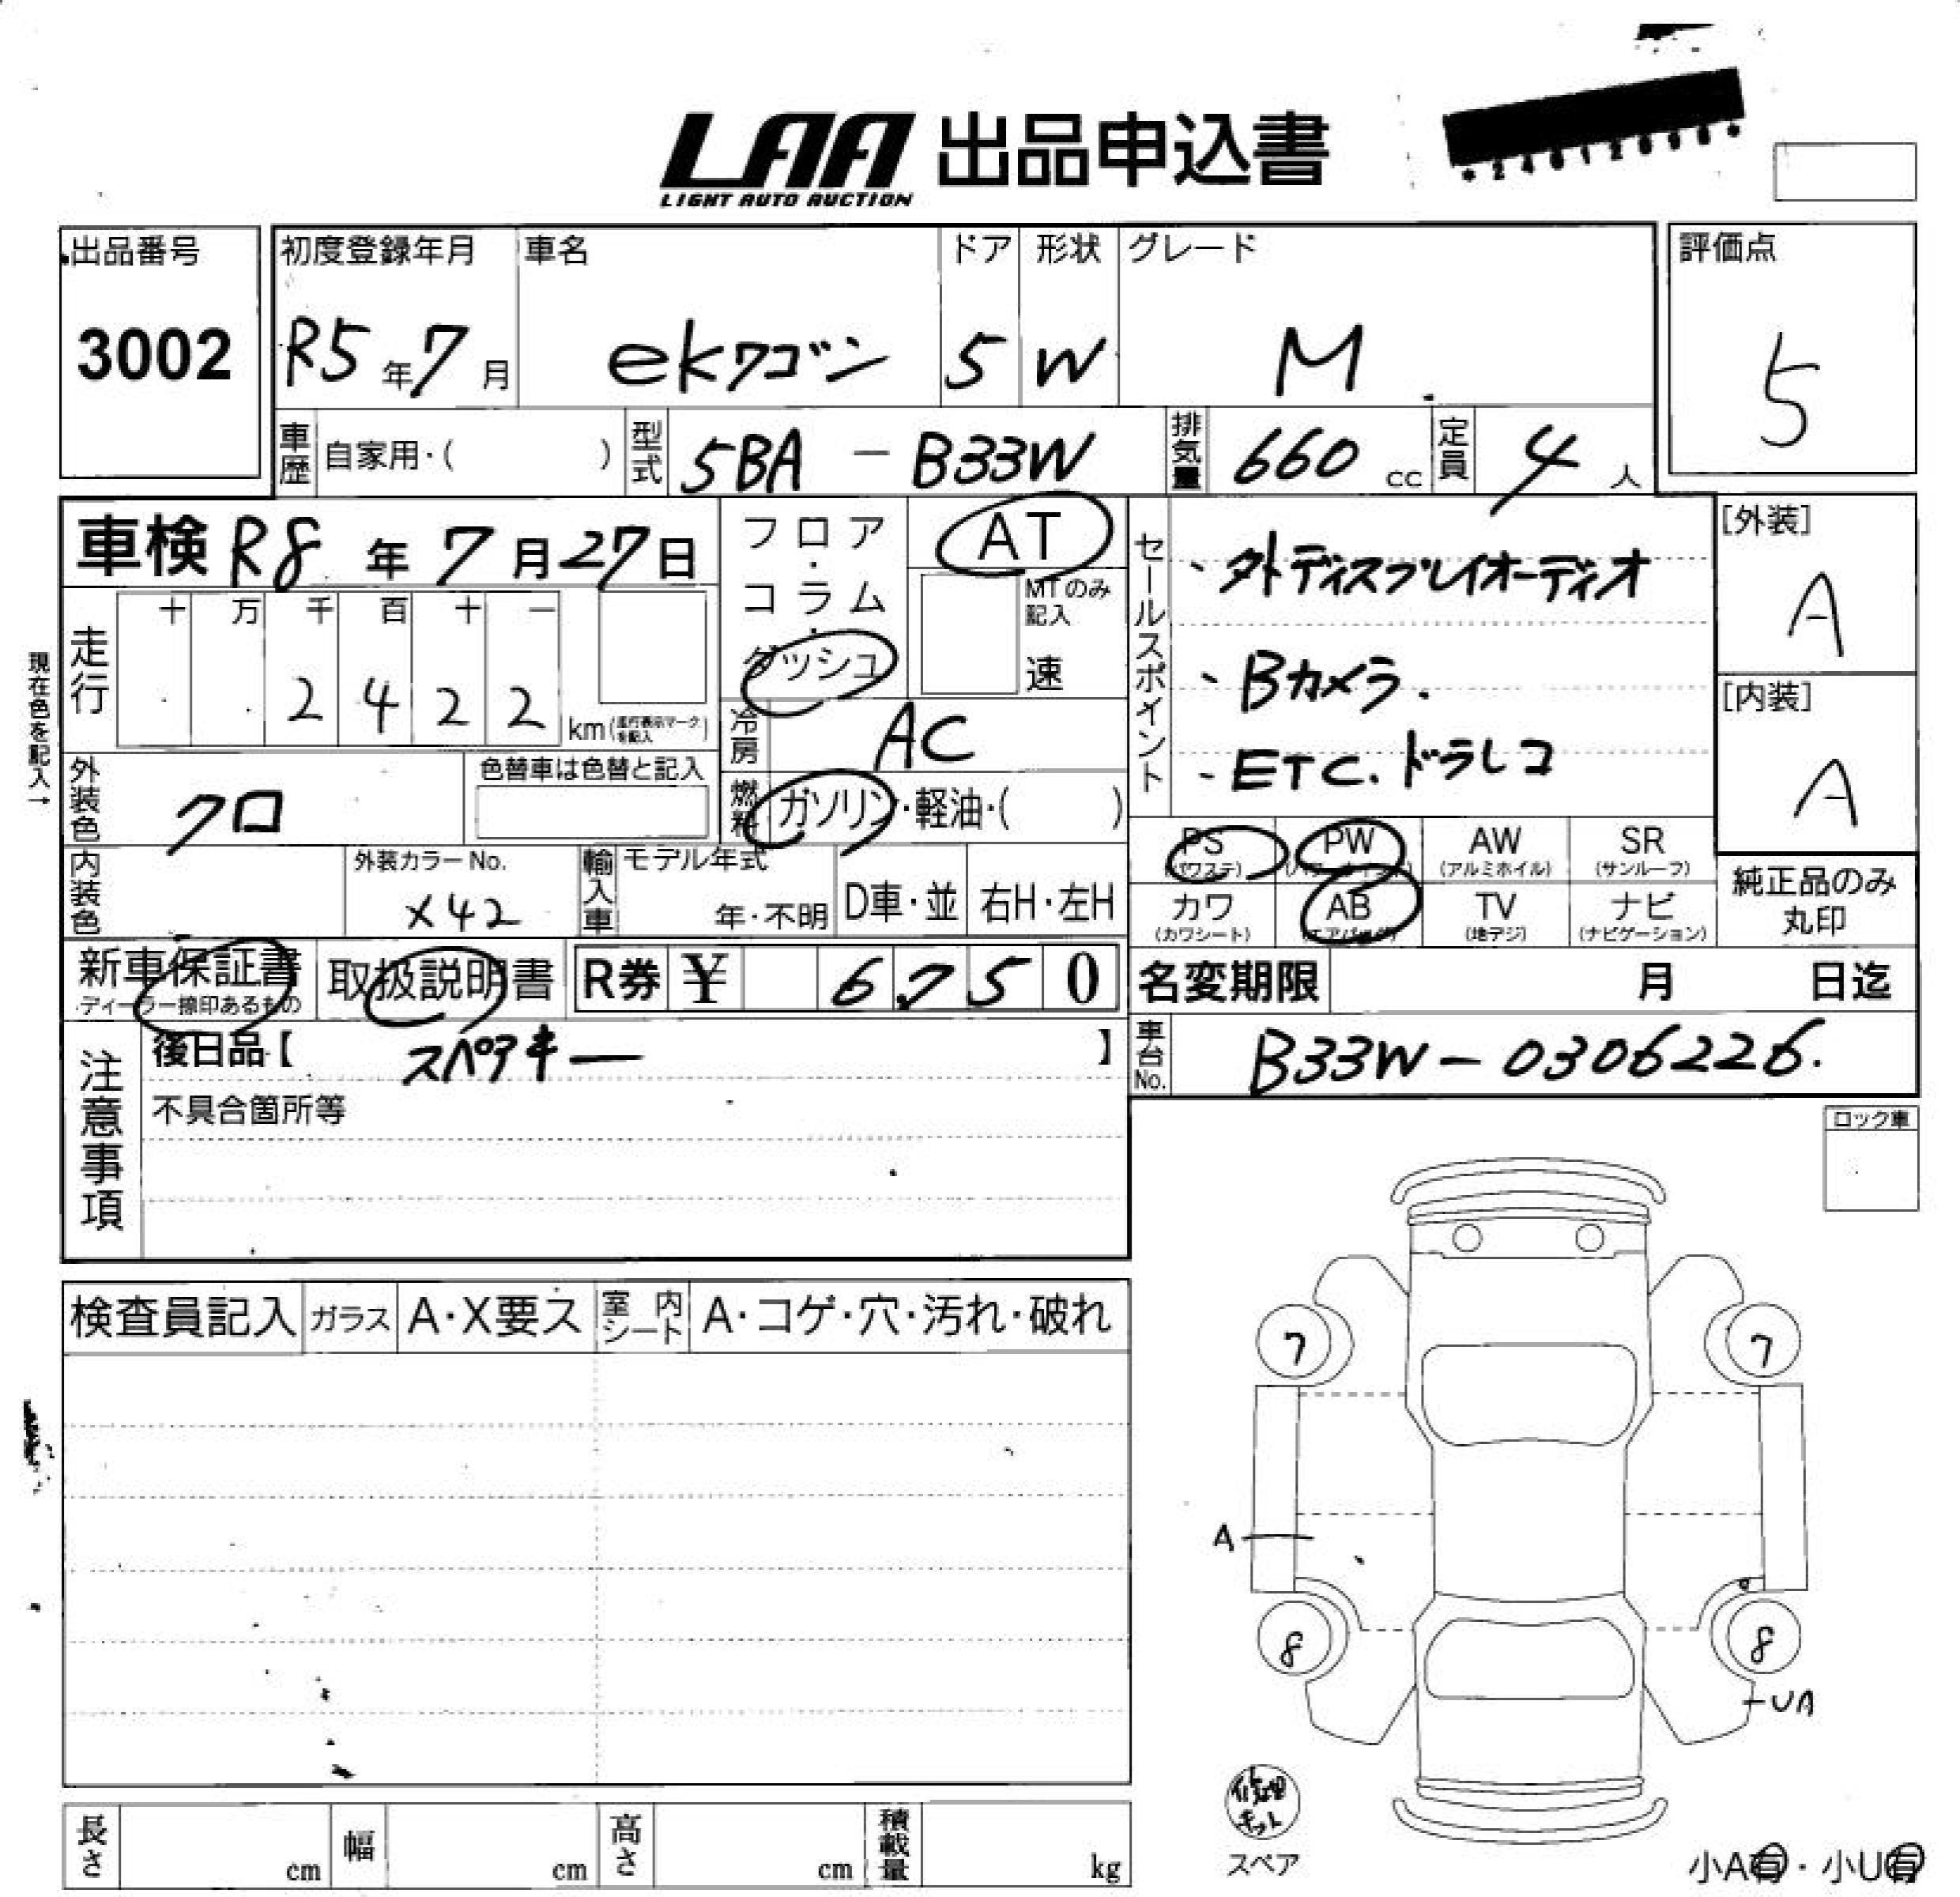 LAA 出品申込書
LIGHT AUTO AUCTION
出品番号
3002
初度登録年月
R5年7月
車名
ekワゴン
ドア
5
形状
W
グレード
M
評価点
5
車歴 自家用・( )
型式 5BA - B33W
排気量 660 cc
定員 4 人
車検 R8年7月27日
フロア・コラム・ダッシュ
AT
MTのみ記入
速
セールスポイント
、外ディスプレイオーディオ
、Bカメラ.
- ETC.ドラレコ
[外装]
A
[内装]
A
現在色を記入→
走行 十 万 千 百 十 一
2 4 2 2
km(走行表示マークを記入)
冷房 AC
外装色 クロ
色替車は色替と記入
燃料 ガソリン・軽油・( )
PS PW AW SR
(パワステ) (アルミホイル) (サンルーフ)
カワ AB TV ナビ
(カワシート) (エアバッグ) (地デジ) (ナビゲーション)
純正品のみ丸印
内装色
外装カラーNo.
X42
輸入車 モデル年式
年・不明
D車・並
右H・左H
新車保証書
ディーラー捺印あるもの
取扱説明書
R券 ¥ 6,750
名変期限 月 日迄
注意事項
後日品【 スペアキー 】
不具合箇所等
車台No. B33W-0306226.
ロック車
検査員記入 ガラス A・X要ス 室内シート A・コゲ・穴・汚れ・破れ
7 7
A
8 8
UA
修理キット
スペア
長さ cm 幅 cm 高さ cm 積載量 kg
小A有・小U有